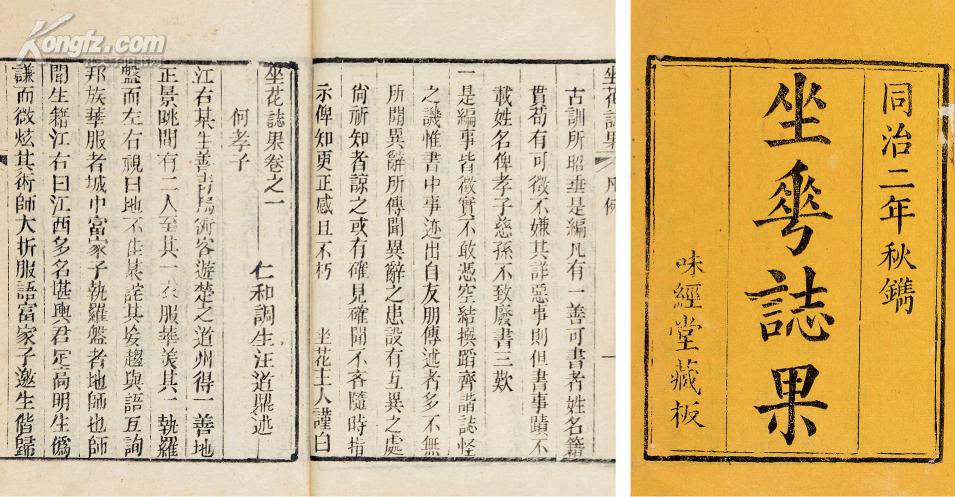 同治二年秋鐫
坐華誌果
味經堂藏板
坐花誌果 凡例 一
古訓所昭垂是編凡有一善可書者姓名籍
貫苟有可徵不嫌其詳惡事則但書事蹟不
載姓名俾孝子慈孫不致廢書三歎
一是編事皆徵實不敢憑空結撰蹈齊諧誌怪
之譏惟書中事迹出自友朋傳述者多不無
所聞異辭所傳聞異辭之患設有互異之處
尙祈知者諒之或有確見確聞不吝隨時指
示俾知更正感且不朽 坐花主人謹白
坐花誌果卷之一
仁和調生汪道鼎述
何孝子
江右某生善青烏術客遊楚之道州得一善地
正景眺間有二人至其一衣服華美其一執羅
盤而左右視曰地不佳某詫其妄趨與語互詢
邦族華服者城中富家子執羅盤者地師也師
聞生籍江右曰江西多名堪輿君定高明生僞
謙而微炫其術師大折服語富家子邀生偕歸
Kongfz.com